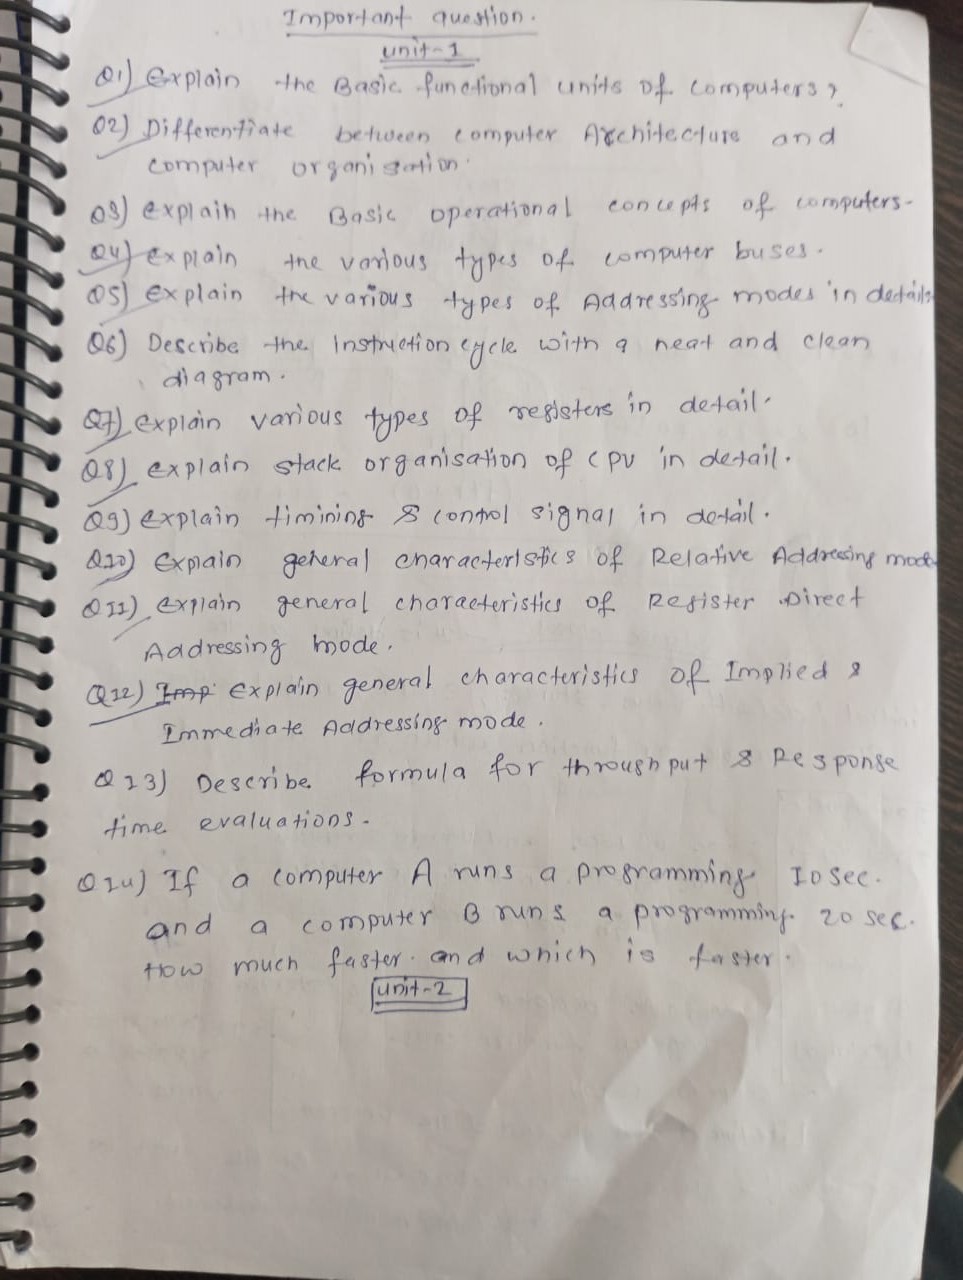 Important question.
unit-1
Q1) Explain the Basic functional units of computers?
Q2) Differentiate between computer Architecture and
computer organisation.
Q3) explain the Basic operational concepts of computers-
Q4) explain the various types of computer buses.
Q5) explain the various types of Addressing modes in details
Q6) Describe the Instruction cycle with a neat and clean
diagram.
Q7) explain various types of registers in detail.
Q8) explain stack organisation of CPU in detail.
Q9) explain timining & control signal in detail.
Q10) Explain general characteristics of Relative Addressing mode
Q11) explain general characteristics of Register Direct
Addressing mode.
Q12) Imp Explain general characteristics of Implied &
Immediate Addressing mode.
Q13) Describe formula for throughput & Response
time evaluations.
Q14) If a computer A runs a programming 10 sec.
and a computer B runs a programming 20 sec.
How much faster and which is faster.
unit-2